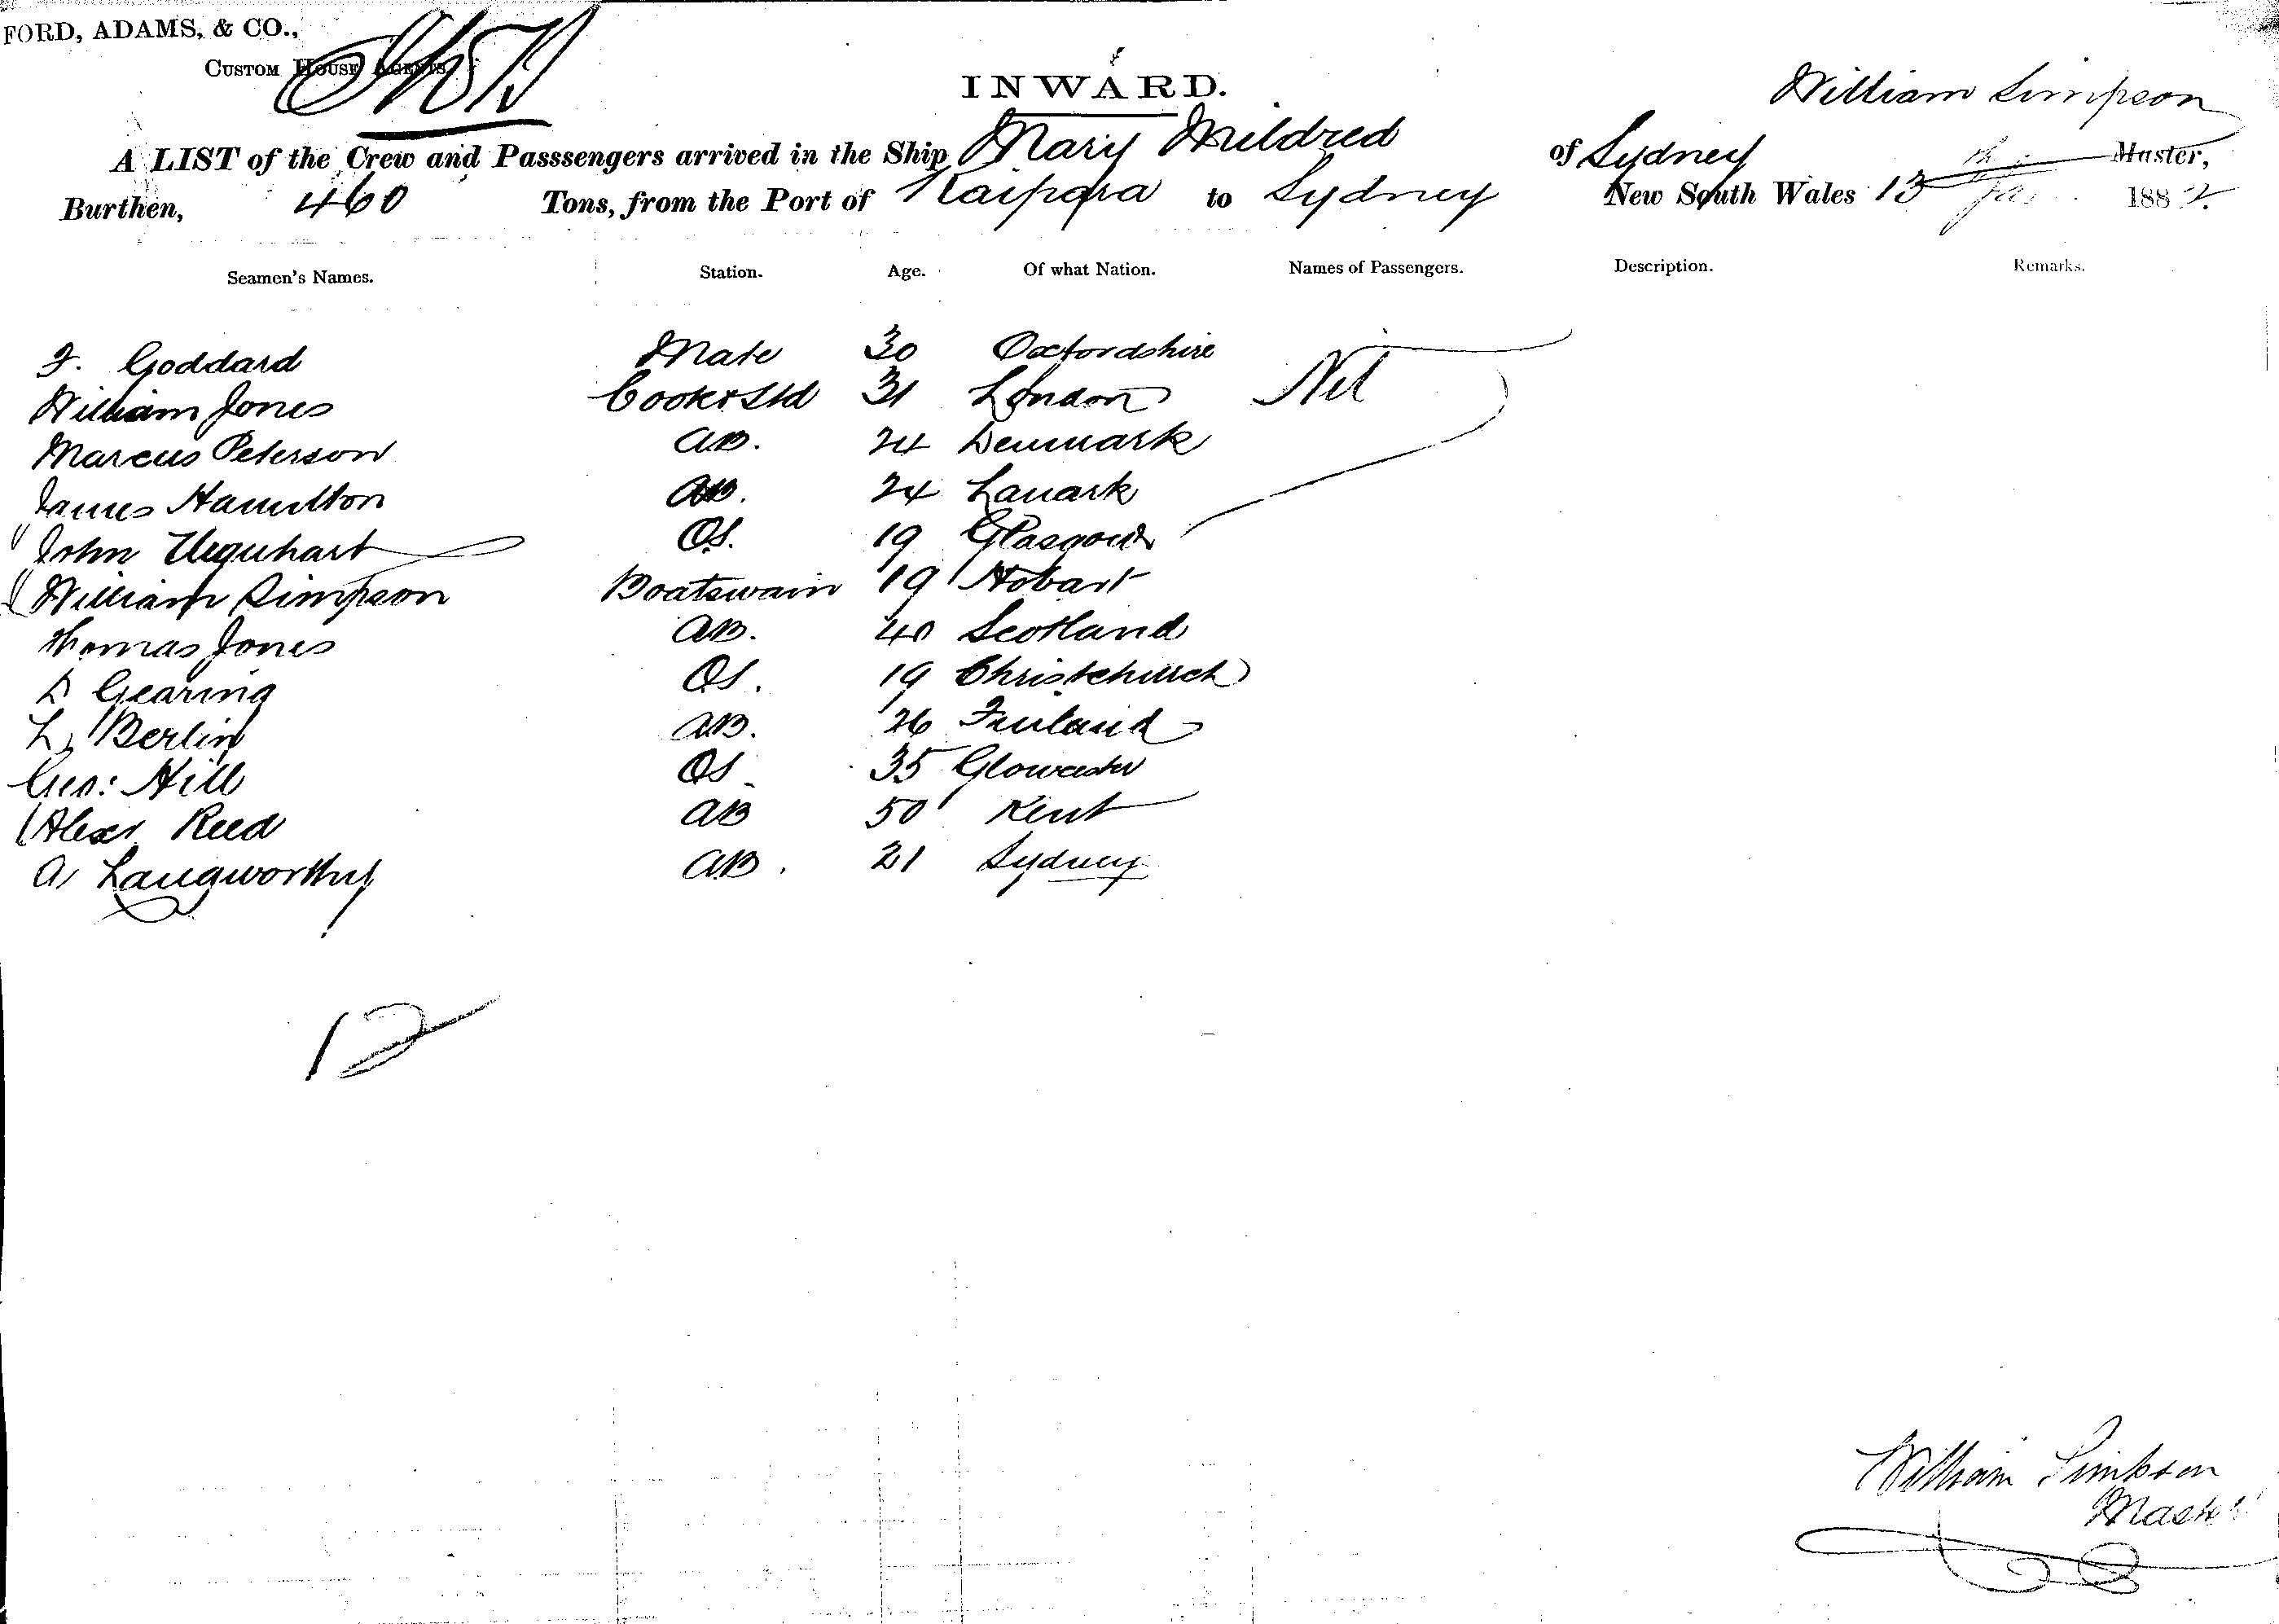 FORD, ADAMS, & CO.,
CUSTOM HOUSE AGENTS
INWARD.
William Simpson
A LIST of the Crew and Passsengers arrived in the Ship Mary Mildred of Sydney Master,
Burthen, 460 Tons, from the Port of Kaipara to Sydney New South Wales 13th Jan 1882
Seamen's Names. Station. Age. Of what Nation. Names of Passengers. Description. Remarks.
F. Goddard Mate 30 Oxfordshire Nil
William Jones Cook & Std 31 London
Marcus Peterson AB. 24 Denmark
James Hamilton AB. 24 Lanark
John Urquhart OS. 19 Glasgow
William Simpson Boatswain 19 Hobart
Thomas Jones AB. 40 Scotland
D Gearing OS. 19 Christchurch
L, Berlin AB. 26 Finland
Geo: Hill OS 35 Glowcester
Alexr. Reed AB 50 Kent
A, Langworthy AB. 21 Sydney
12
William Simpson
Master